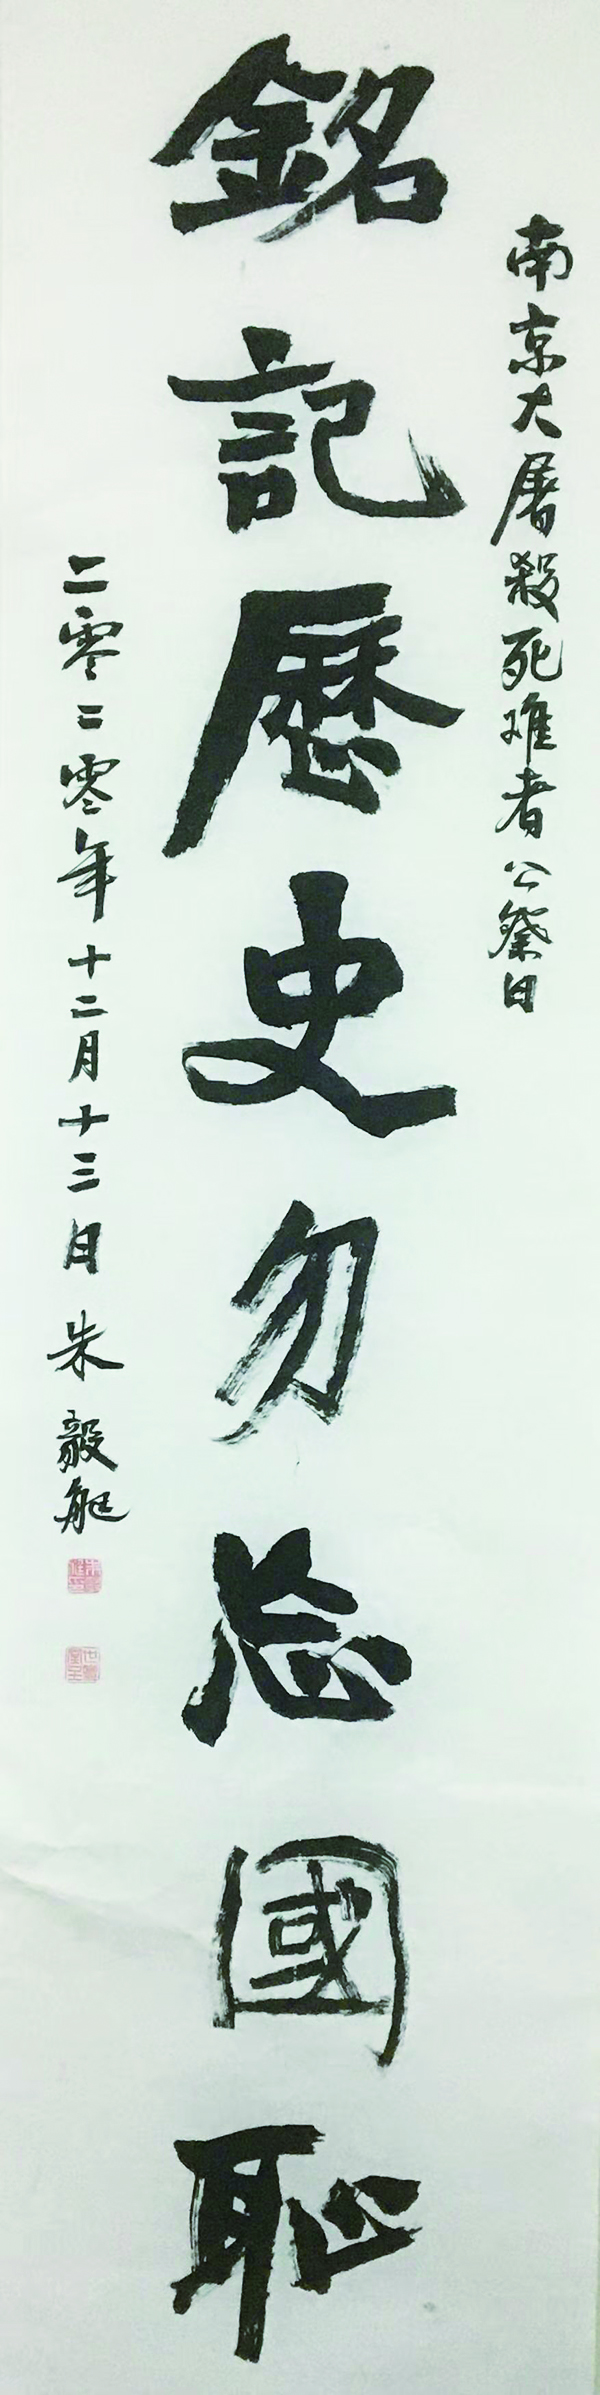 南京大屠殺死难者公祭日
銘記歷史勿忘國恥
二零二零年十二月十三日 朱毅